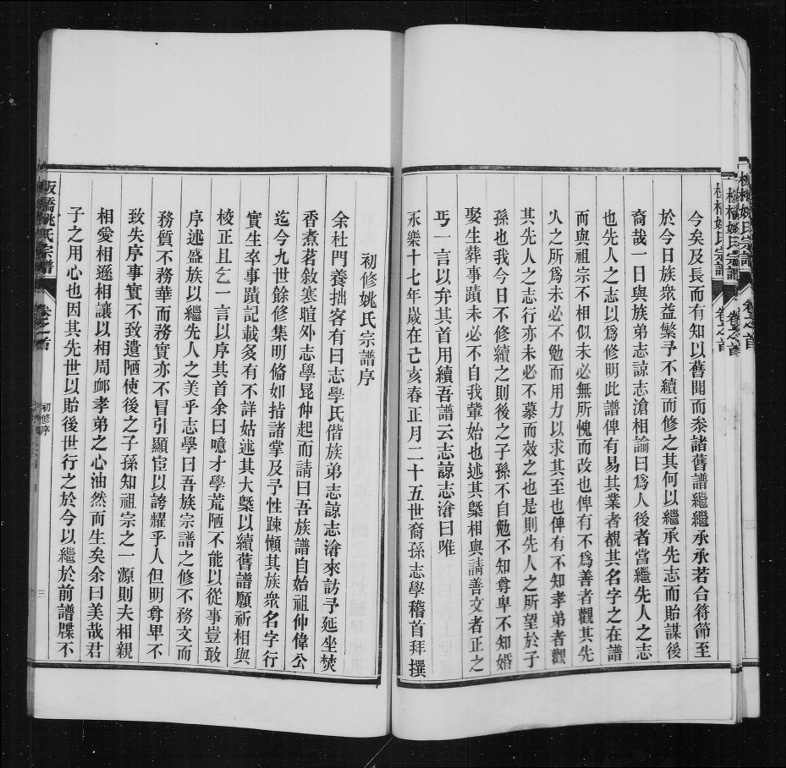 今矣及長而有知以舊聞而叅諸舊譜繼繼承承若合符節至
於今日族衆益繁予不續而修之其何以繼承先志而貽謀後
裔哉一日與族弟志諒志滄相論曰爲人後者當繼先人之志
也先人之志以爲修明此譜俾有易其業者覩其名字之在譜
而與祖宗不相似未必無所愧而改也俾有不爲善者觀其先
人之所爲未必不勉而用力以求其至也俾有不知孝弟者觀
其先人之志行亦未必不慕而效之也是則先人之所望於子
孫也我今日不修續之則後之子孫不自勉不知尊卑不知婚
娶生葬事蹟未必不自我輩始也述其槩相與請善文者正之
丐一言以弁其首用續吾譜云志諒志滄曰唯
永樂十七年歲在己亥春正月二十五世裔孫志學稽首拜撰
初修姚氏宗譜序
余杜門養拙客有曰志學氏偕族弟志諒志滄來訪予延坐焚
香煮茗敘寒暄外志學晁仲起而請曰吾族譜自始祖仲偉公
迄今九世餘修集明備如指諸掌及予性踈懶其族衆名字行
實生卒事蹟記載多有不詳姑述其大槩以續舊譜願祈相與
棱正且乞一言以序其首余曰噫才學荒陋不能以從事豈敢
序述盛族以繼先人之美乎志學曰吾族宗譜之修不務文而
務質不務華而務實亦不冒引顯宦以誇耀乎人但明尊卑不
致失序事實不致遺陋使後之子孫知祖宗之一源則夫相親
相愛相遜相讓以相周卹孝弟之心油然而生矣余曰美哉君
子之用心也因其先世以貽後世行之於今以繼於前譜牒不
板橋姚氏宗譜
卷之首
初修序
三